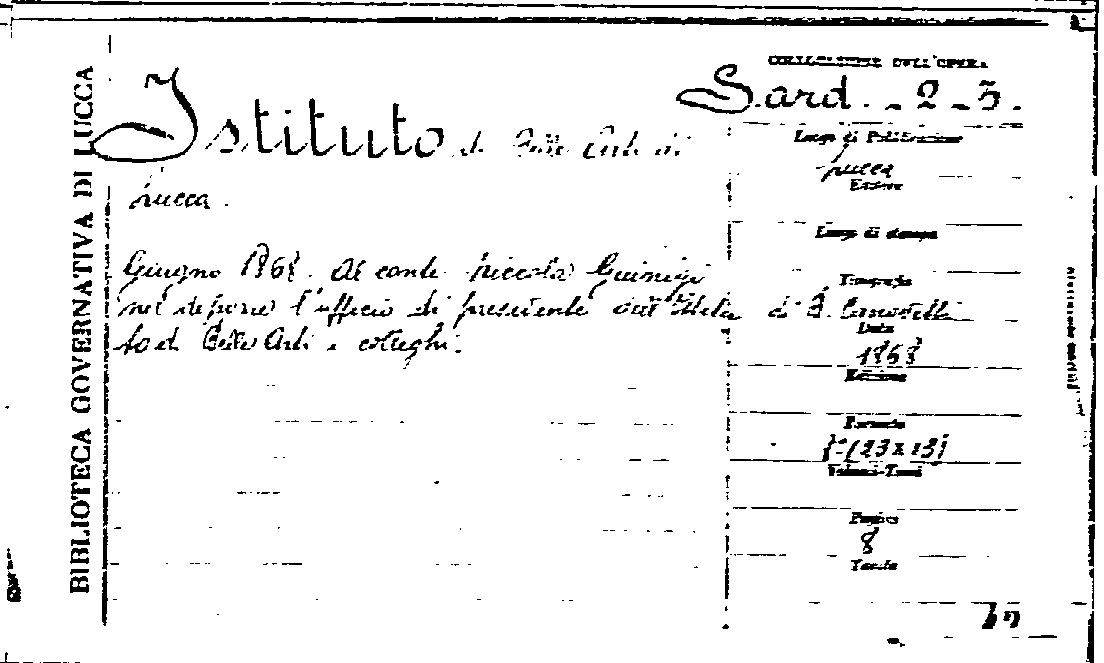 BIBLIOTECA GOVERNATIVA DI LUCCA
COLLOCAZIONE DELL'OPERA
Sard. - 2 - 5.
Istituto di Belle Arti di
Lucca.
Giugno 1868. Al conte Niccola Guinigi
nel deporre l'ufficio di presidente dell'Istitu
to di Belle Arti i colleghi.
Luogo di Pubblicazione
Lucca
Editore
Luogo di stampa
Tipografia
di B. Canovetti
Data
1868
Edizione
Formato
8º (23x13)
Volumi-Tomi
Pagine
8
Tavole